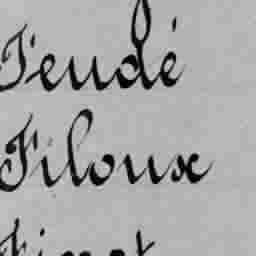 Feudé
Filoux